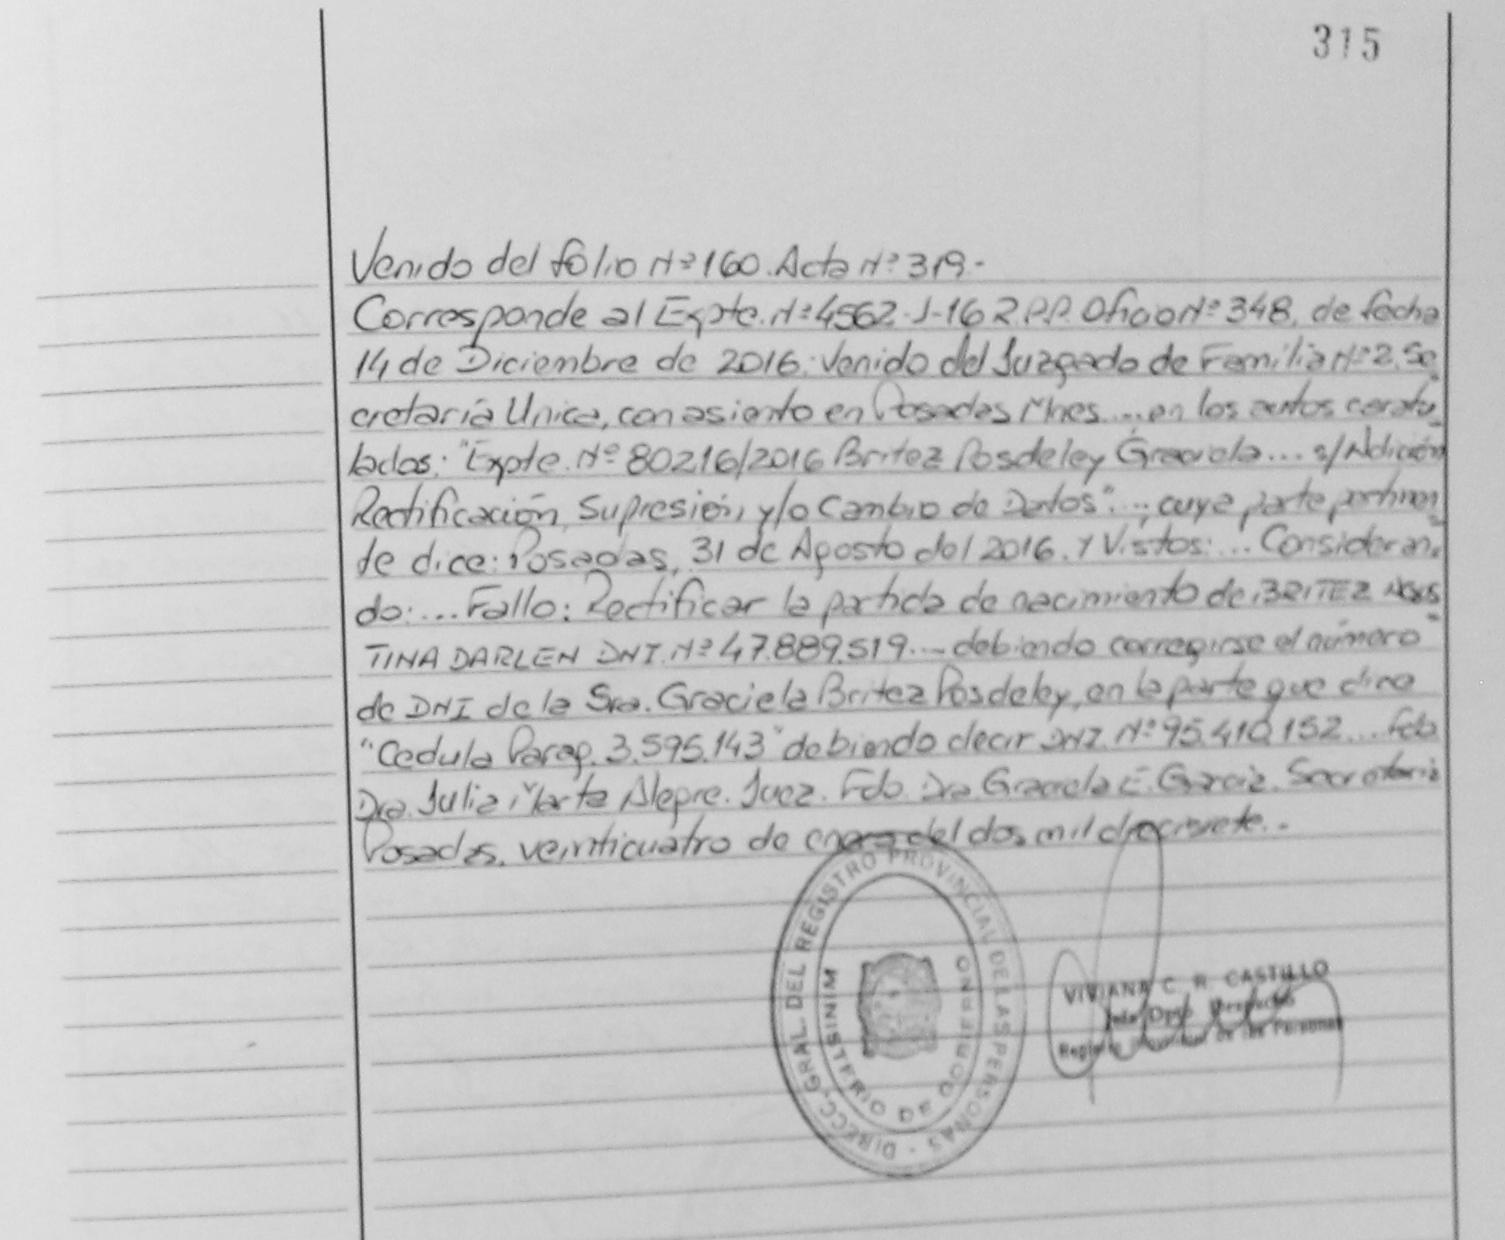 315
Venido del folio Nº 160. Acta Nº 319.-
Corresponde al Expte. Nº 4562-J-16 R.P.P. Oficio Nº 348, de fecha
14 de Diciembre de 2016. Venido del Juzgado de Familia Nº 2. Se
cretaría Unica, con asiento en Posadas Mnes... en los autos caratu
lados: "Expte. Nº 80216/2016 Britez Posdeley Graciela... s/Adición
Rectificación, Supresión, y/o Cambio de Datos"..., cuya parte pertinen
te dice: Posadas, 31 de Agosto del 2016. Y Vistos:... Consideran
do:... Fallo: Rectificar la partida de nacimiento de: BRITEZ
TINA DARLEN DNI. Nº 47.889.519... debiendo corregirse el número
de DNI de la Sra. Graciela Britez Posdeley, en la parte que dice
"Cedula Parag. 3.595.143" debiendo decir DNI. Nº 95.410.152... Fdo.
Dra. Julia Marta Alegre. Juez. Fdo. Dra. Graciela E. Garcia. Secretaria
Posadas, veinticuatro de enero del dos mil diecisiete..-
DIRECC. GRAL. DEL REGISTRO PROVINCIAL DE LAS PERSONAS -
MINISTERIO DE GOBIERNO
VIVIANA C. R. CASTILLO
Jefe Dpto. Despacho
Registro Provincial de las Personas